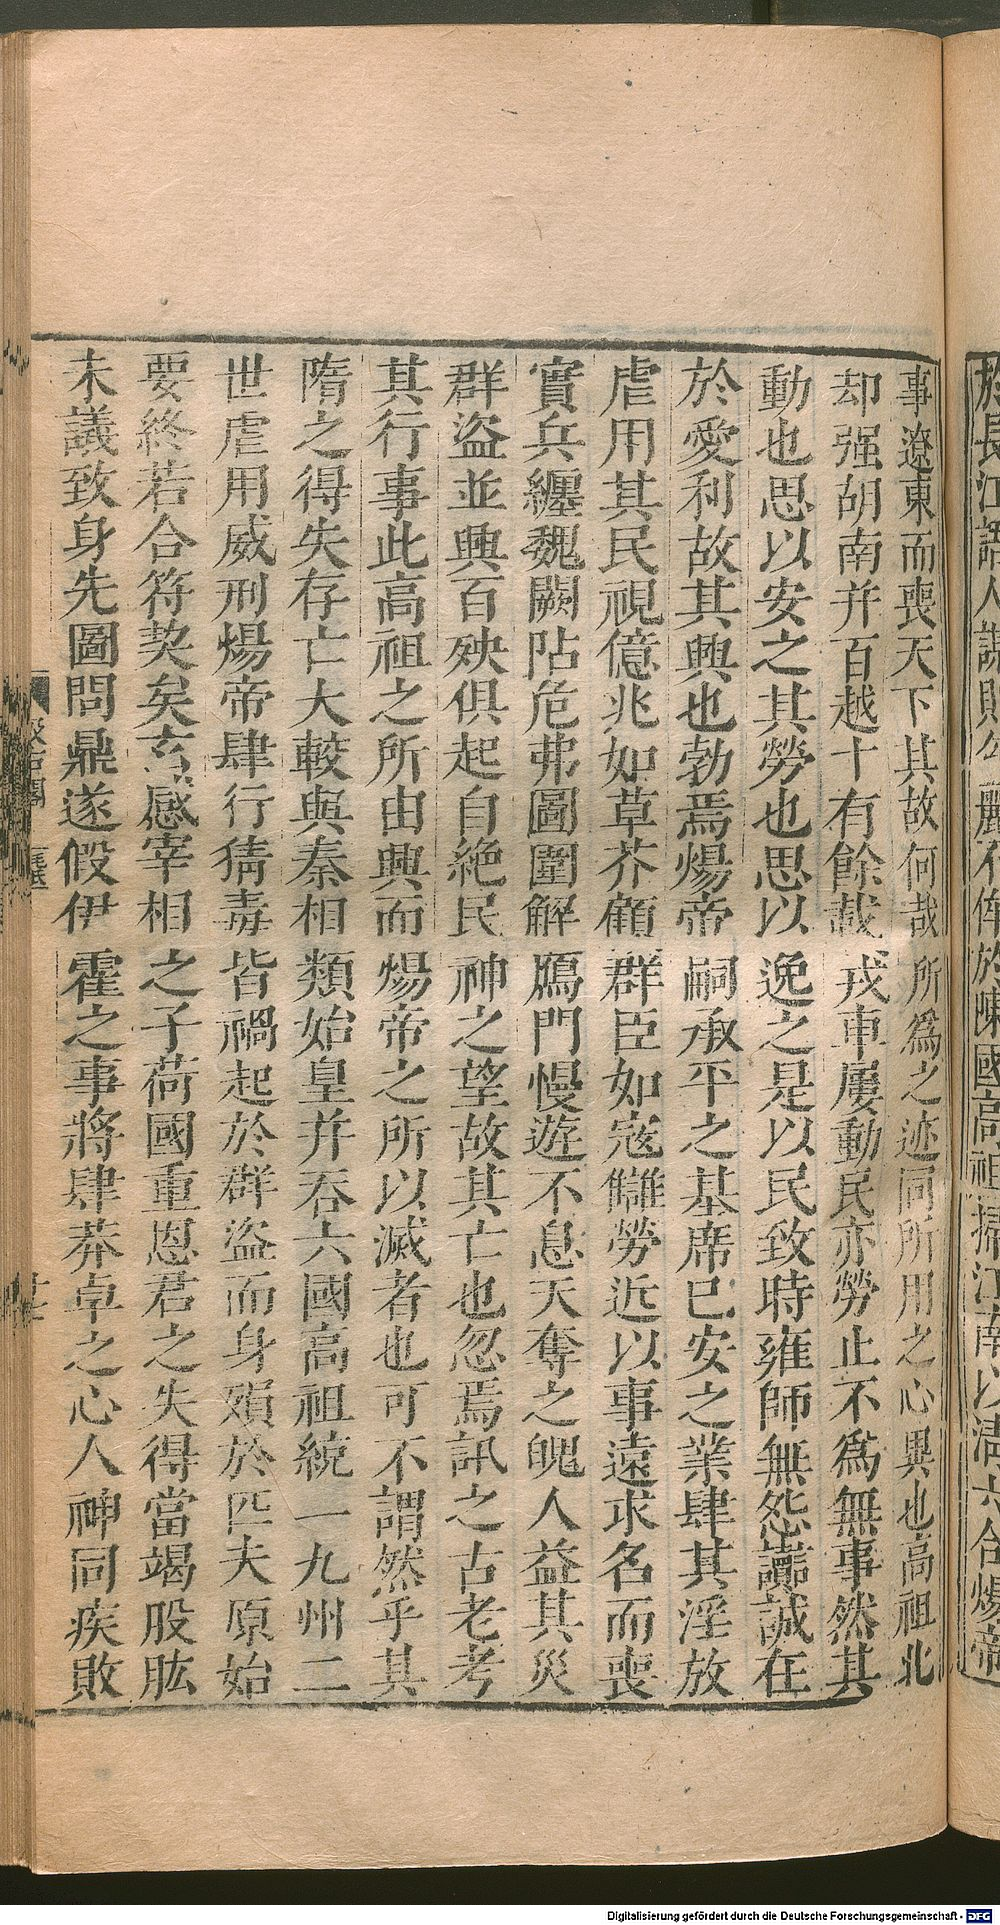 於長江語人謀則勾麗不侔於陳國高祖掃江南以清六合煬帝
事遼東而喪天下其故何哉所爲之迹同所用之心異也高祖北
却强胡南并百越十有餘載戎車屢動民亦勞止不爲無事然其
動也思以安之其勞也思以逸之是以民致時雍師無怨讟誠在
於愛利故其興也勃焉煬帝嗣承平之基席已安之業肆其淫放
虐用其民視億兆如草芥顧群臣如寇讎勞近以事遠求名而喪
實兵纏魏闕阽危弗圖圍解鴈門慢遊不息天奪之魄人益其災
群盜並興百殃俱起自絶民神之望故其亡也忽焉訊之古老考
其行事此高祖之所由興而煬帝之所以滅者也可不謂然乎其
隋之得失存亡大較與秦相類始皇并吞六國高祖統一九州二
世虐用威刑煬帝肆行猜毒皆禍起於群盜而身殞於匹夫原始
要終若合符契矣玄感宰相之子荷國重恩君之失得當竭股肱
未議致身先圖問鼎遂假伊霍之事將肆莽卓之心人神同疾敗
Digitalisierung gefördert durch die Deutsche Forschungsgemeinschaft - DFG